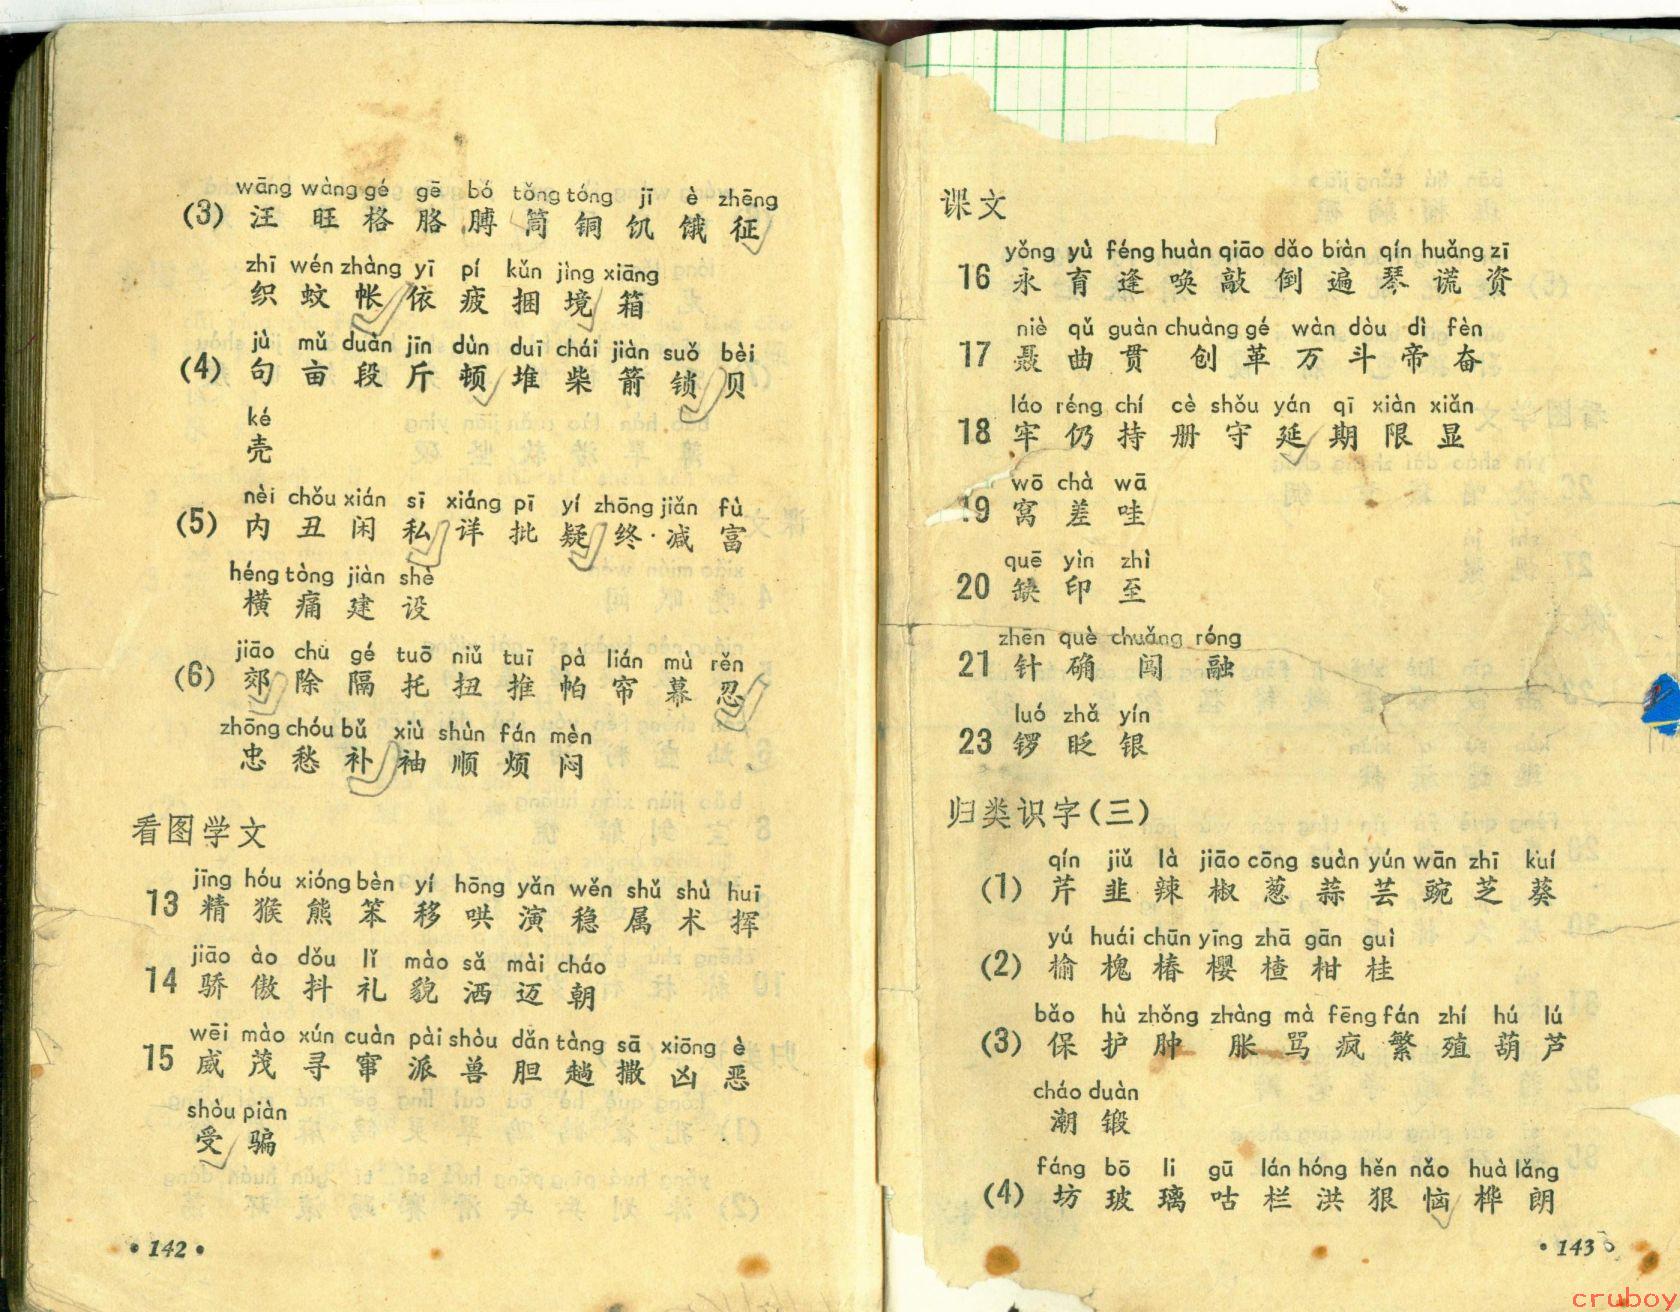 wāng wàng gé gē bó tǒng tóng jī è zhēng
(3) 汪 旺 格 胳 膊 筒 铜 饥 饿 征
zhī wén zhàng yī pí kǔn jìng xiāng
织 蚊 帐 依 疲 捆 境 箱
jù mǔ duàn jīn dùn duī chái jiàn suǒ bèi
(4) 句 亩 段 斤 顿 堆 柴 箭 锁 贝
ké
壳
nèi chǒu xián sī xiáng pī yí zhōng jiǎn fù
(5) 内 丑 闲 私 详 批 疑 终 减 富
héng tòng jiàn shè
横 痛 建 设
jiāo chú gé tuō niǔ tuī pà lián mù rěn
(6) 郊 除 隔 托 扭 推 帕 帘 幕 忍
zhōng chóu bǔ xiù shùn fán mèn
忠 愁 补 袖 顺 烦 闷
看图学文
jīng hóu xióng bèn yí hōng yǎn wěn shǔ shù huī
13 精 猴 熊 笨 移 哄 演 稳 属 术 挥
jiāo ào dǒu lǐ mào sǎ mài cháo
14 骄 傲 抖 礼 貌 洒 迈 朝
wēi mào xún cuàn pài shòu dǎn tàng sā xiōng è
15 威 茂 寻 窜 派 兽 胆 趟 撒 凶 恶
shòu piàn
受 骗
• 142 •
课文
yǒng yù féng huàn qiāo dǎo biàn qín huǎng zī
16 永 育 逢 唤 敲 倒 遍 琴 谎 资
niè qǔ guàn chuàng gé wàn dòu dì fèn
17 聂 曲 贯 创 革 万 斗 帝 奋
láo réng chí cè shǒu yán qī xiàn xiǎn
18 牢 仍 持 册 守 延 期 限 显
wō chà wā
19 窝 差 哇
quē yìn zhì
20 缺 印 至
zhēn què chuǎng róng
21 针 确 闯 融
luó zhǎ yín
23 锣 眨 银
归类识字(三)
qín jiǔ là jiāo cōng suàn yún wān zhī kuí
(1) 芹 韭 辣 椒 葱 蒜 芸 豌 芝 葵
yú huái chūn yīng zhā gān guì
(2) 榆 槐 椿 樱 楂 柑 桂
bǎo hù zhǒng zhàng mà fēng fán zhí hú lú
(3) 保 护 肿 胀 骂 疯 繁 殖 葫 芦
cháo duàn
潮 锻
fáng bō li gū lán hóng hěn nǎo huà lǎng
(4) 坊 玻 璃 咕 栏 洪 狠 恼 桦 朗
• 143
cruboy